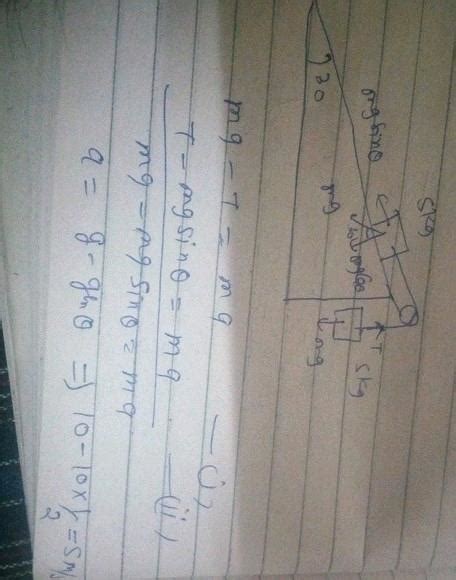 5kg
mgsinθ
30
mg
mgcosθ
T
5kg
mg
mg - T = ma — (i)
T - mgsinθ = ma — (ii)
mg - mgsinθ = ma
a = g - gsinθ ⇒ 10 - 10x1/2 = 5m/s